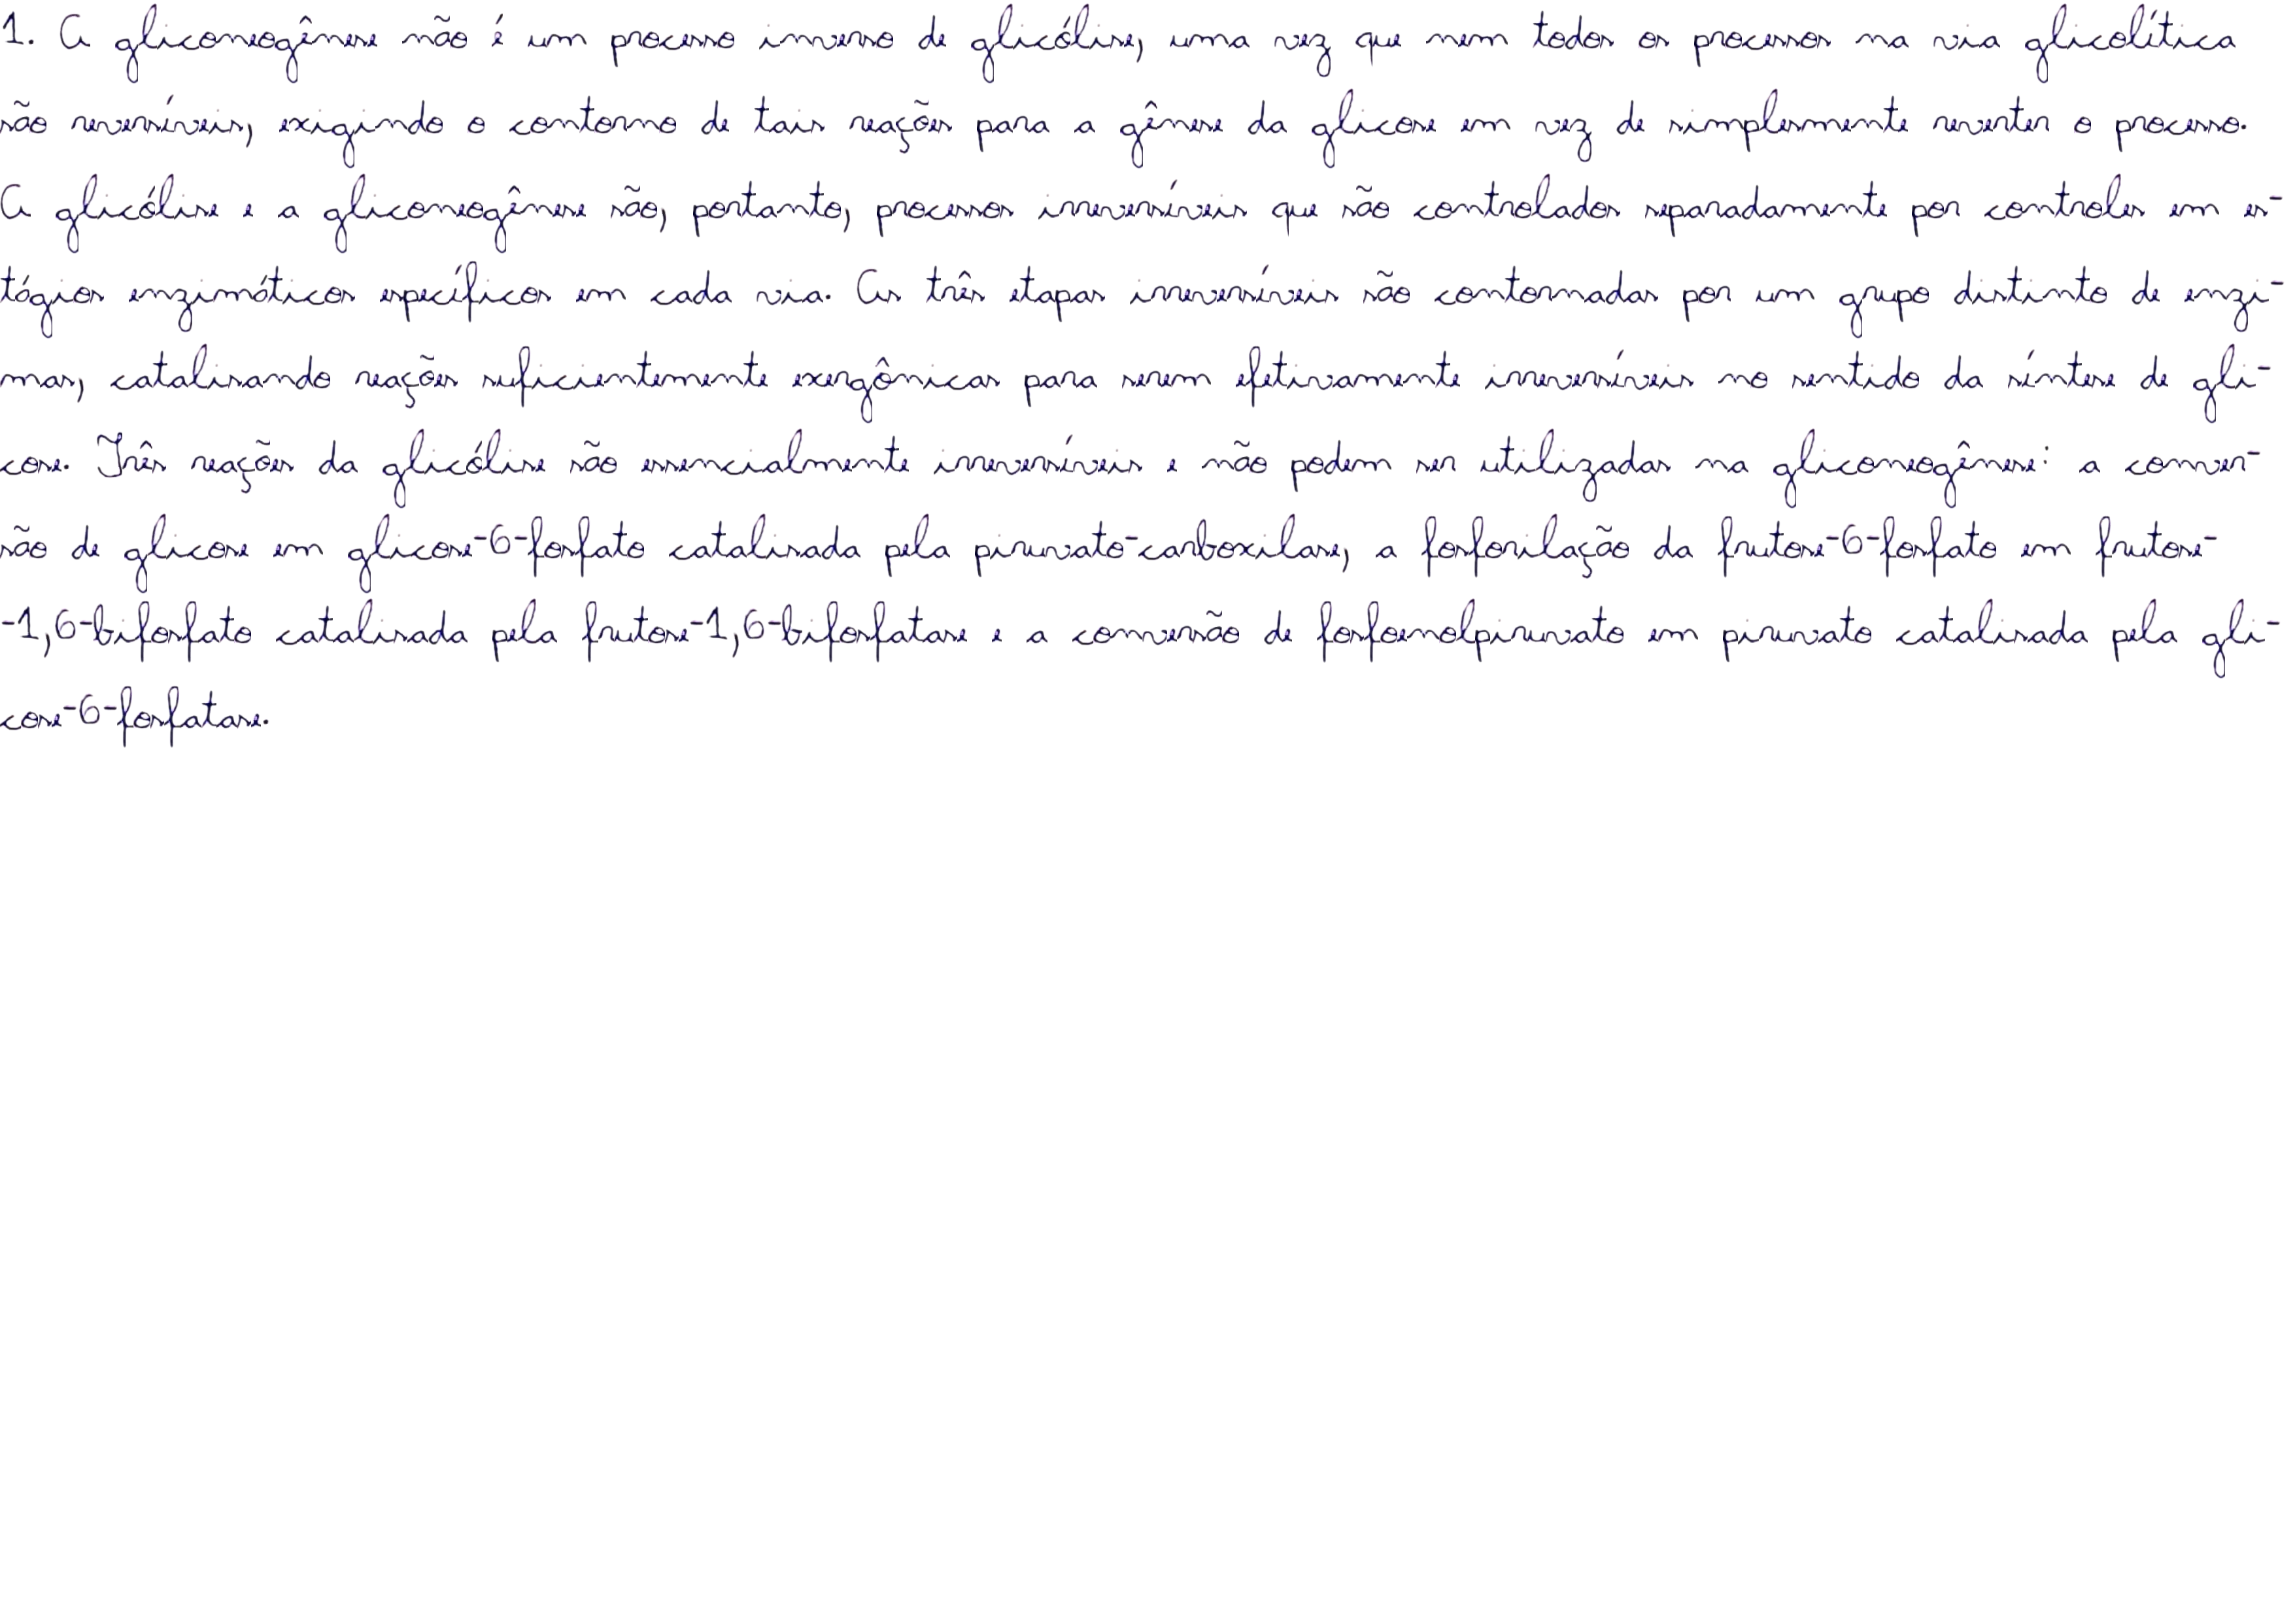 1. A gliconeogênese não é um processo inverso de glicólise, uma vez que nem todos os processos na via glicolítica
são reversíveis, exigindo o contorno de tais reações para a gênese da glicose em vez de simplesmente reverter o processo.
A glicólise e a gliconeogênese são, portanto, processos irreversíveis que são controlados separadamente por controles em es-
tágios enzimáticos específicos em cada via. As três etapas irreversíveis são contornadas por um grupo distinto de enzi-
mas, catalisando reações suficientemente exergônicas para serem efetivamente irreversíveis no sentido da síntese de gli-
cose. Três reações da glicólise são essencialmente irreversíveis e não podem ser utilizadas na gliconeogênese: a conver-
são de glicose em glicose-6-fosfato catalisada pela piruvato-carboxilase, a fosforilação da frutose-6-fosfato em frutose-
-1,6-bifosfato catalisada pela frutose-1,6-bifosfatase e a conversão de fosfoenolpiruvato em piruvato catalisada pela gli-
cose-6-fosfatase.